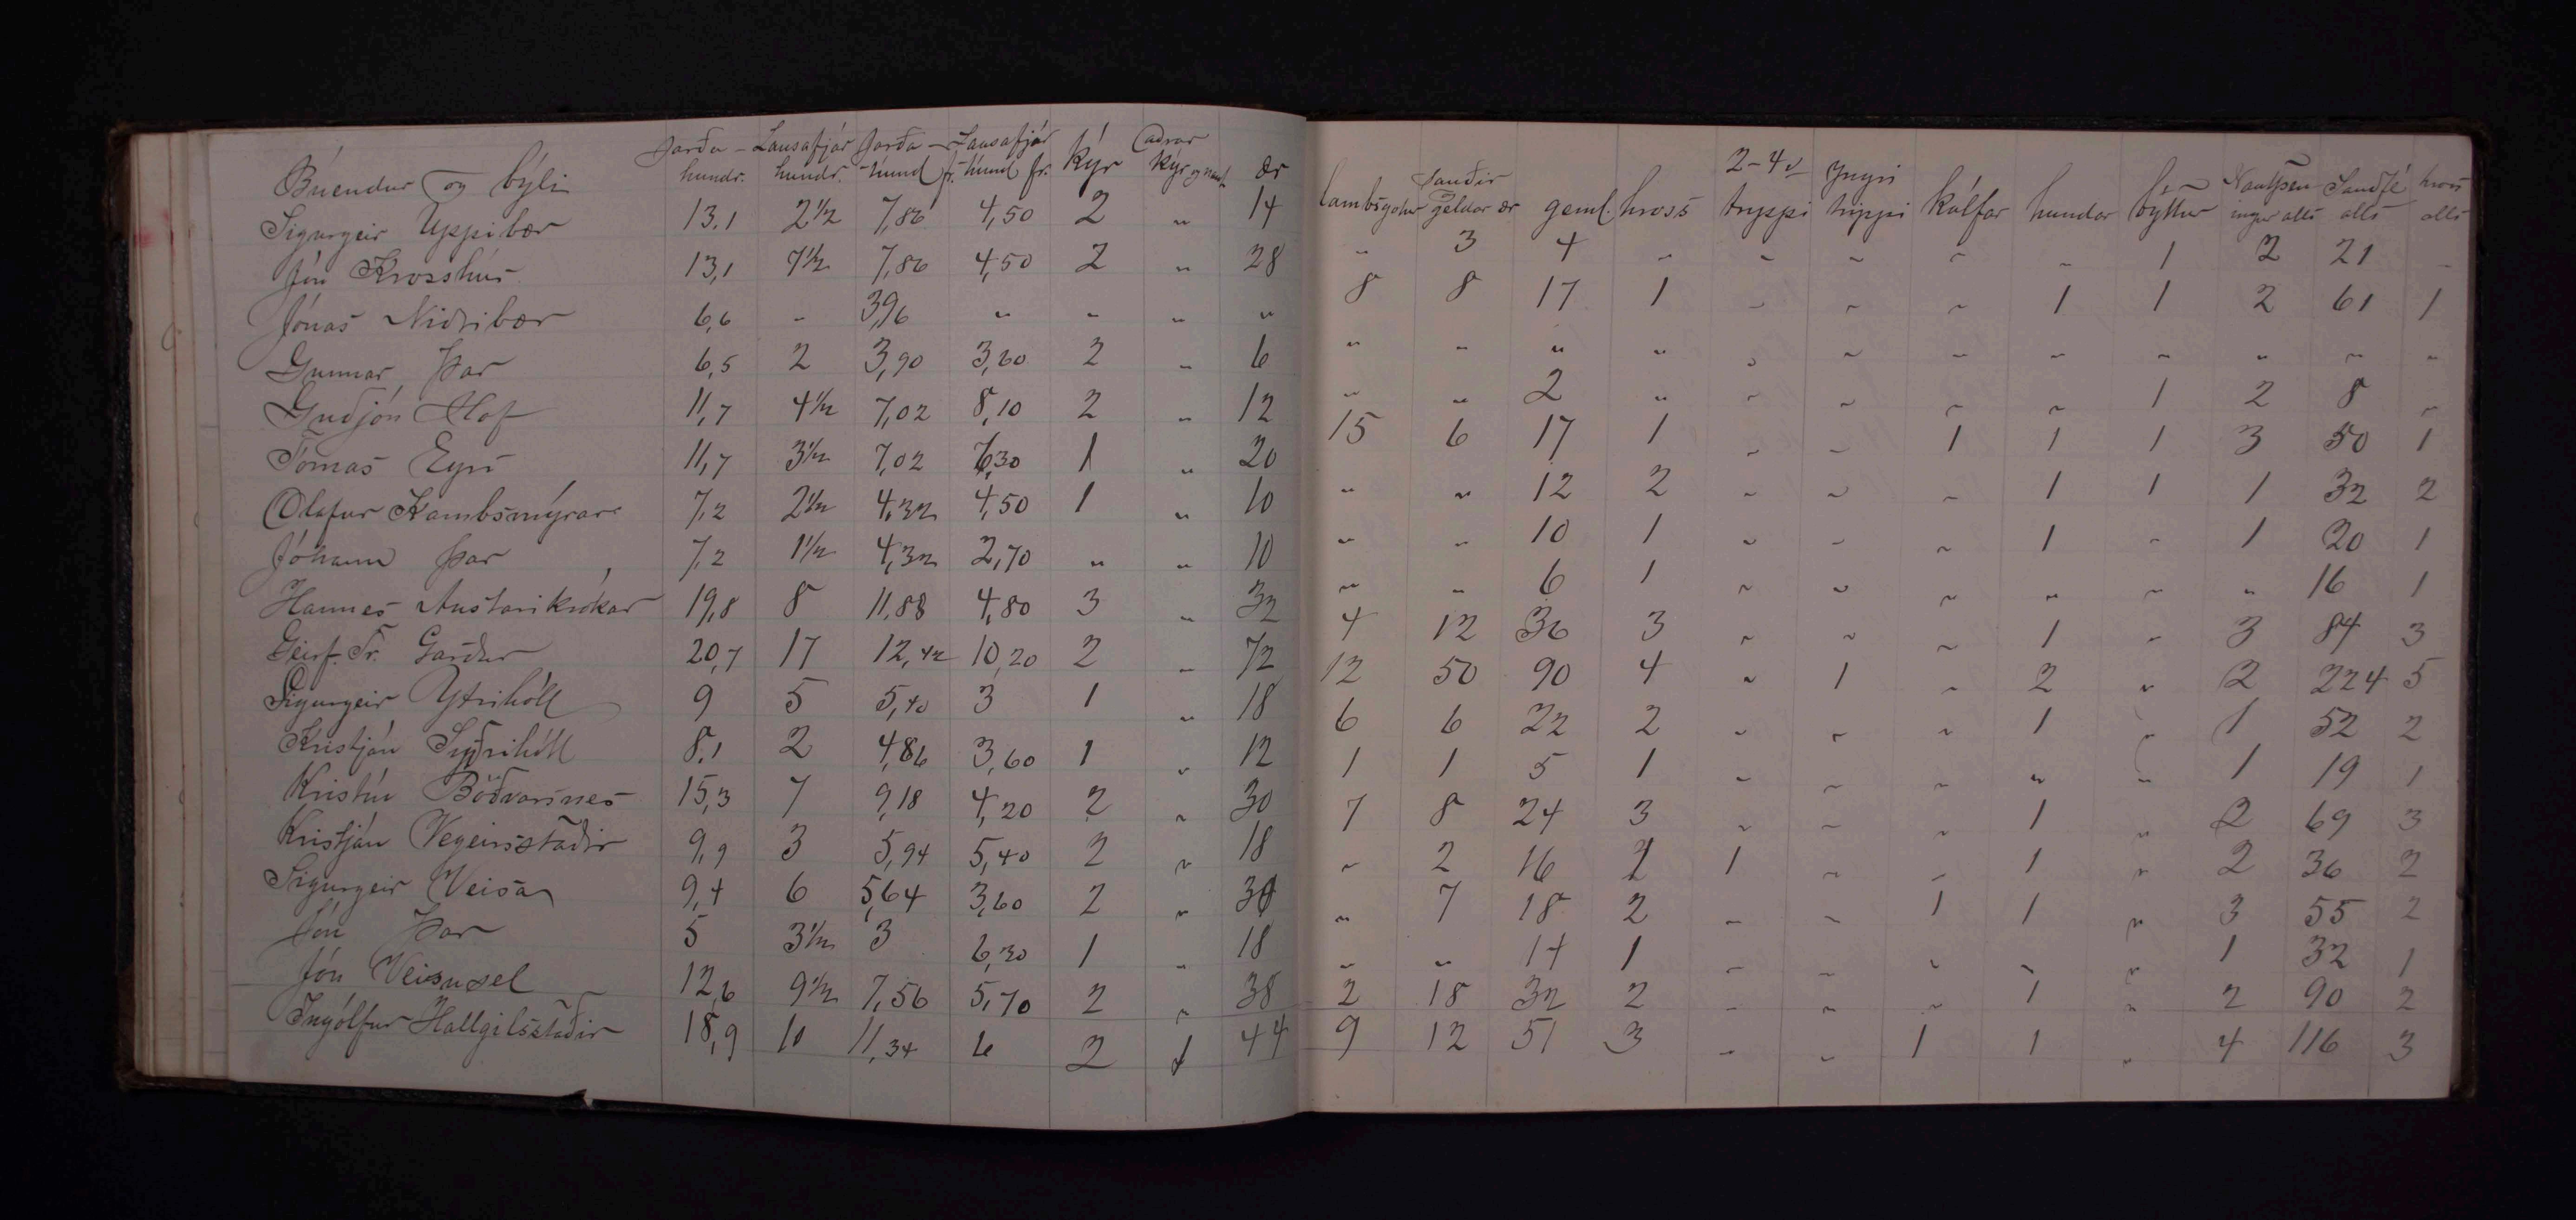 Jarða - Lausafjár Jarða - Lausafjár aðrar
Búendur og býli hundr. hundr. hund fr. hund fr. Kýr Kýr og naut ær
Sigurgeir Uppibær 13.1 2½ 7,86 4,50 2 „ 14
Jón Krosshús 13,1 7½ 7,86 4,50 2 „ 28
Jónas Niðribær 6,6 „ 3,96 „ „ „ „
Gunnar Þar 6,5 2 3,90 3,60 2 „ 6
Guðjón Hof 11,7 4½ 7,02 8,10 2 „ 12
Tómas Eyri 11,7 3½ 7,02 6,30 1 „ 20
Olafur Kambsmýrar 7,2 2½ 4,32 4,50 1 „ 10
Jóhann Þar 7,2 1½ 4,32 2,70 „ „ 10
Hannes Austarikrókar 19,8 8 11,88 4,80 3 „ 32
Geirf. Tr. Garður 20,7 17 12,42 10,20 2 „ 72
Sigurgeir Ytrihóll 9 5 5,40 3 1 „ 18
Kristján Syðrihóll 8,1 2 4,86 3,60 1 „ 12
Kristín Böðvarsnes 15,3 7 9,18 4,20 2 „ 30
Kristján Vegeirsstaðir 9,9 3 5,94 5,40 2 „ 18
Sigurgeir Veisa 9,4 6 5,64 3,60 2 „ 30
Jón Þar 5 3½ 3 6,30 1 „ 18
Jón Veisusel 12,6 9½ 7,56 5,70 2 „ 38
Ingólfur Hallgilsstaðir 18,9 10 11,34 6 2 1 44
Sauðir 2-4 v Yngri Nautpen Sauðfé hross
lambsgotur geldar ær geml. hross tryppi trippi kálfar hundar byttur ingur alls alls alls
„ 3 4 „ „ „ „ „ 1 2 21 „
8 8 17 1 „ „ „ 1 1 2 61 1
„ „ „ „ „ „ „ „ „ „ „ „
„ „ 2 „ „ „ „ „ 1 2 8 „
15 6 17 1 „ „ 1 1 1 3 50 1
„ „ 12 2 „ „ „ 1 1 1 32 2
„ „ 10 1 „ „ „ 1 „ 1 20 1
„ „ 6 1 „ „ „ „ „ „ 16 1
4 12 36 3 „ „ „ 1 „ 3 84 3
12 50 90 4 „ 1 „ 2 „ 2 224 5
6 6 22 2 „ „ „ 1 „ 1 52 2
1 1 5 1 „ „ „ „ „ 1 19 1
7 8 24 3 „ „ „ 1 „ 2 69 3
„ 2 16 1 1 „ „ 1 „ 2 36 2
„ 7 18 2 „ „ 1 1 „ 3 55 2
„ „ 14 1 „ „ „ „ „ 1 32 1
2 18 32 2 „ „ „ 1 „ 2 90 2
9 12 51 3 „ „ 1 1 „ 4 116 3